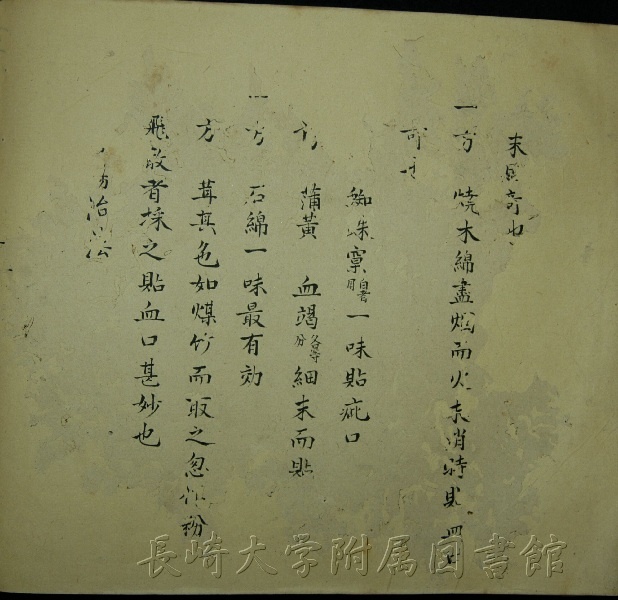 末貼奇也
一方 燒木綿盡烟而火未消時貼血口
奇也
蜘蛛窠 一味貼疵口
方 蒲黃 血竭各等分細末而貼
一方 石綿一味最有効
方 茸其色如煤竹而取之忽作粉
飛散者採之貼血口甚妙也
方治法
長崎大学附属図書館